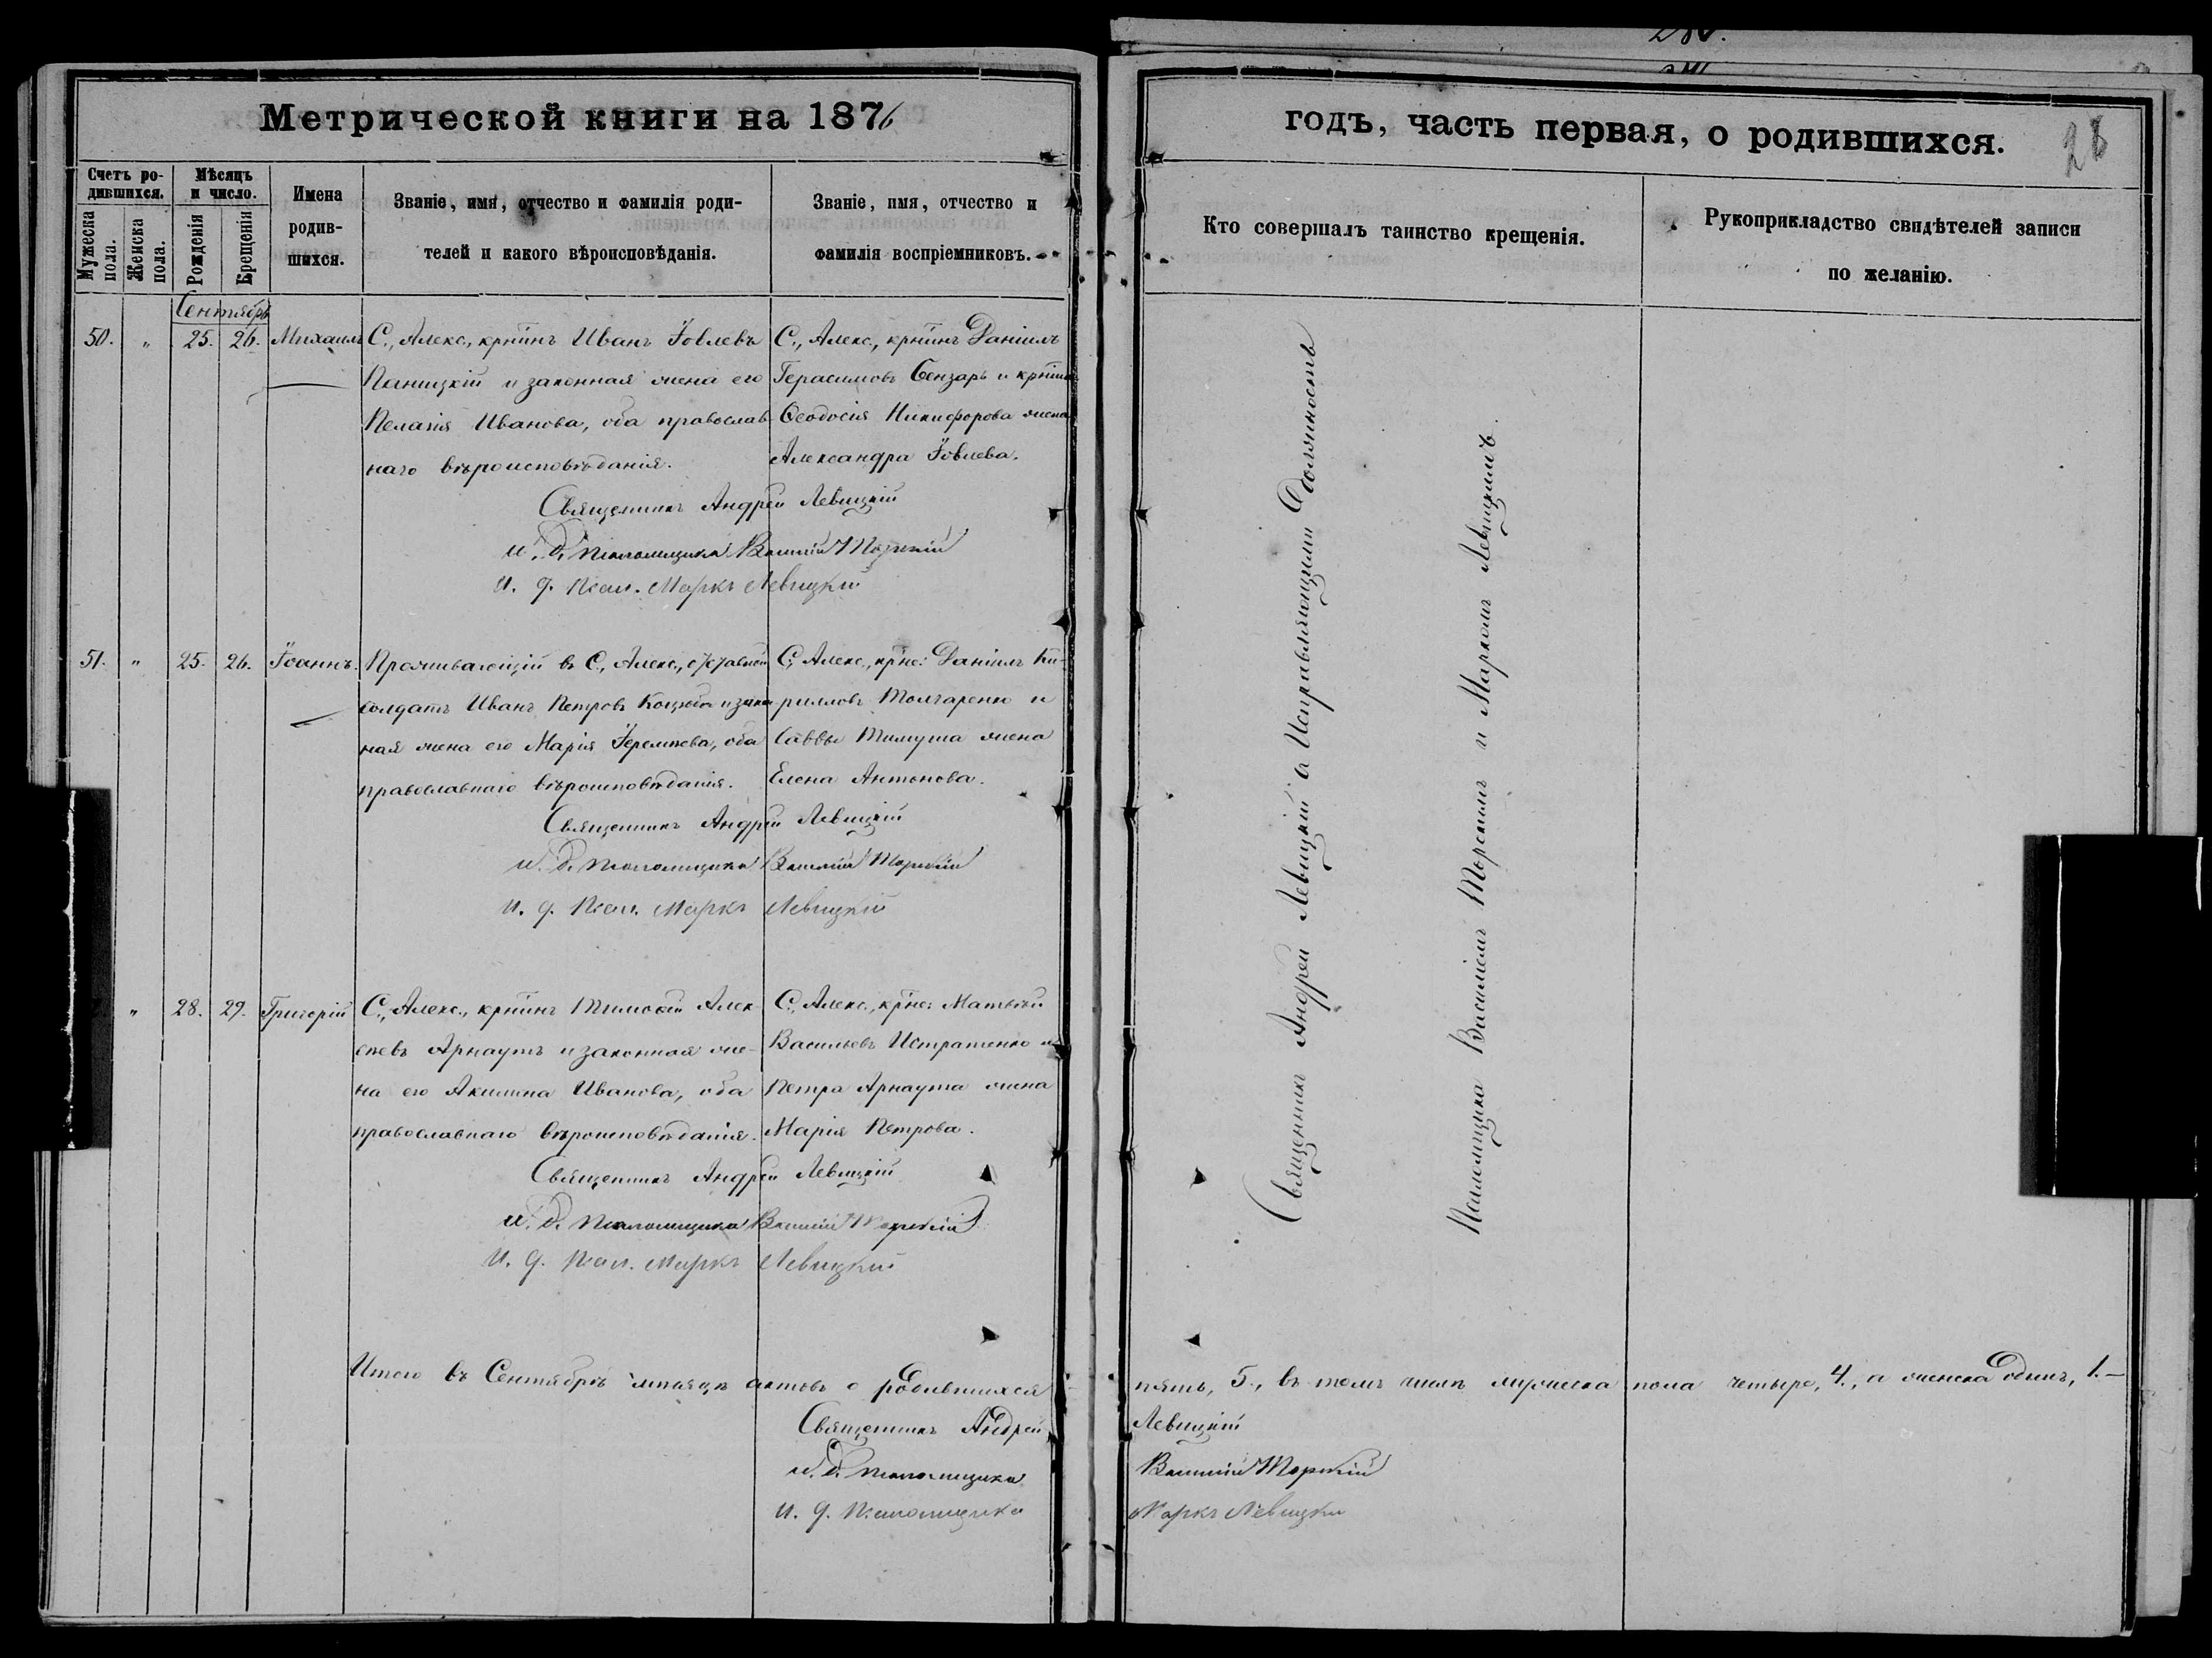 Метрической книги на 1876
Счетъ ро-
дившихся.
Мѣсяцъ
и число.
Мужеска
пола.
Женска
пола.
Рожденія
Крещенія
Имена
родив-
шихся.
Званіе, имя, отчество и фамилія роди-
телей и какого вѣроисповѣданія.
Званіе, имя, отчество и
фамилія воспріемниковъ.
Сентябрь
50. " 25. 26. Михаилъ
С., Алекс., крнинъ Иванъ Іовлевъ
Паницкій и законная жена его
Пелагія Иванова, оба православ
наго вѣроисповѣданія.
С., Алекс., крнинъ Даніилъ
Герасимовъ Бензарь и крнина
Ѳеодосія Никифорова жена
Александра Іовлева.
Священникъ Андрей Левицкій
и. д. псаломщика Василій Торскій
и. д. псал. Маркъ Левицкій
51. " 25. 26. Іоаннъ.
Проживающій въ С., Алекс., отставной
солдатъ Иванъ Петровъ Коцюба и закон
ная жена его Марія Іеремѣева, оба
православнаго вѣроисповѣданія.
С., Алекс., крне: Даніилъ Ки-
рилловъ Толчаренко и
Саввы Тимуша жена
Елена Антонова.
Священникъ Андрей Левицкій
и. д. псаломщика Василій Торскій
и. д. псал. Маркъ Левицкій
" 28. 29. Григорій
С., Алекс., крнинъ Тимоѳей Алек
сѣевъ Арнаутъ и законная же-
на его Акилина Иванова, оба
православнаго вѣроисповѣданія.
С., Алекс., крне: Матвѣй
Васильевъ Истратенко и
Петра Арнаута жена
Марія Петрова.
Священникъ Андрей Левицкій
и. д. псаломщика Василій Торскій
и. д. псал. Маркъ Левицкій
Итого въ Сентябрѣ мѣсяцѣ актовъ о родившихся
Священникъ Андрей
и. д. псаломщика
и. д. псаломщика
годъ, часть первая, о родившихся.
Кто совершалъ таинство крещенія.
Рукоприкладство свидѣтелей записи
по желанію.
Священникъ Андрей Левицкій съ Исправляющими Должность
Псаломщика Василіемъ Торскимъ и Маркомъ Левицкимъ.
пять, 5., въ томъ числѣ мужеска пола четыре, 4., а женска одинъ, 1.—
Левицкій
Василій Торскій
Маркъ Левицкій